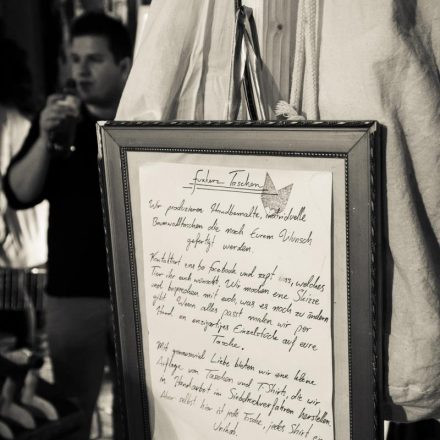 funkers Taschen
Wir produzieren Handbemalte, individuelle
Baumwolltaschen die nach Eurem Wunsch
gefertigt werden.
Kontaktiert uns bei Facebook und sagt uns, welches
Tier ihr euch wünscht. Wir machen eine Skizze
und besprechen mit euch, was es noch zu ändern
gibt. Wenn alles passt malen wir per
Hand ein einzigartiges Einzelstück auf eure
Tasche.
Mit genauso viel Liebe bieten wir eine kleine
Auflage von Taschen und T-Shirts, die wir
in Handarbeit im Siebdruckverfahren herstellen.
Aber selbst hier ist jede Tasche, jedes Shirt ein
Unikat.